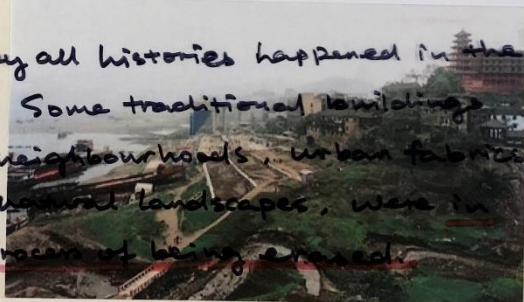 y all histories happened in the
Some traditional buildings
neighbourhoods, urban fabrics
natural landscapes, were in
rocess of being erased.